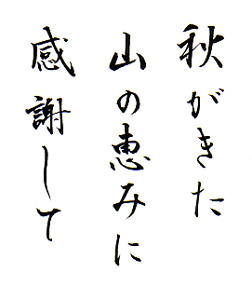 秋がきた
山の恵みに
感謝して